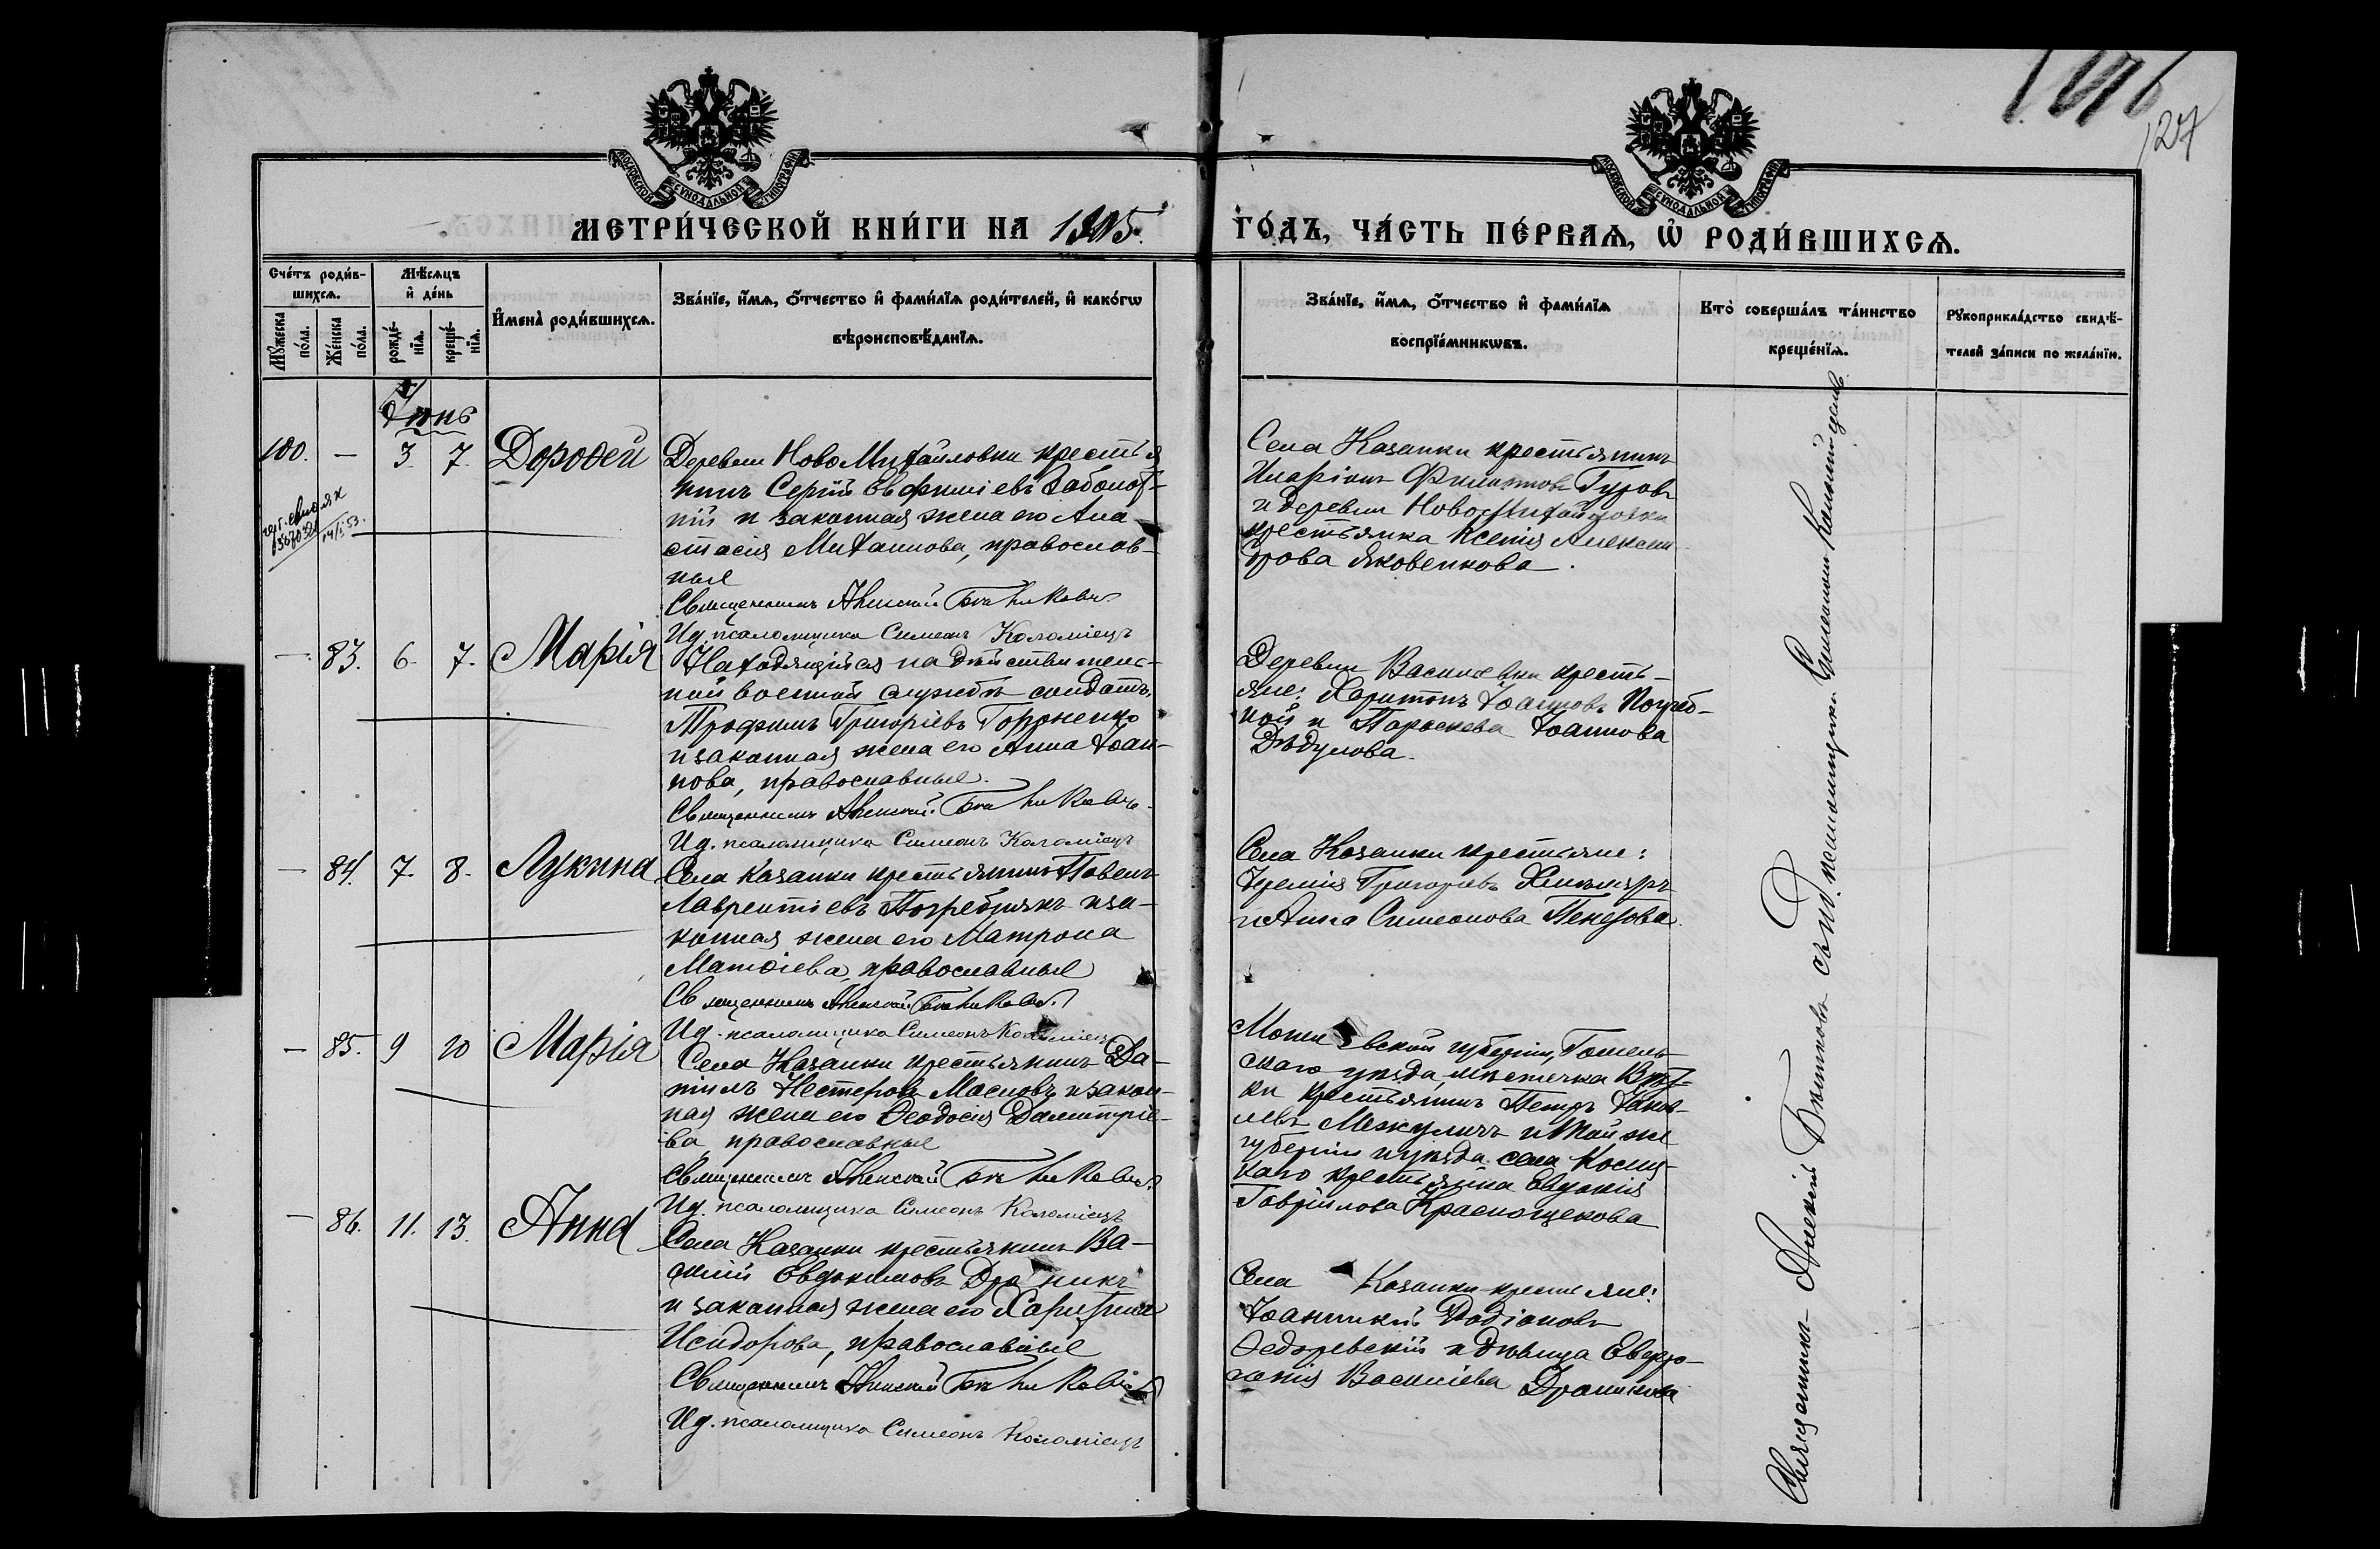 127
МОСКОВСКОЙ СУНОДАЛЬНОЙ ТИПОГРАФІИ
МОСКОВСКОЙ СУНОДАЛЬНОЙ ТИПОГРАФІИ
МЕТРИ́ЧЕСКОЙ КНИ́ГИ НА 1905.
ГО́ДЪ, ЧА́СТЬ ПЕ́РВАѦ, Ѡ҆ РОДИ́ВШИХСѦ.
Сче́тъ роди́в-
шихсѧ.
Мꙋ́жеска по́ла.
Же́нска по́ла.
Мѣ́сѧцъ
и҆ де́нь
рожде́-
нїѧ.
креще́-
нїѧ.
И҆мена̀ роди́вшихсѧ.
Зва́нїе, и҆́мѧ, о҆́тчество и҆ фами́лїѧ роди́телей, и҆ како́гѡ
вѣроисповѣ́данїѧ.
Зва́нїе, и҆́мѧ, о҆́тчество и҆ фами́лїѧ
воспрїе́мникѡвъ.
Кто̀ соверша́лъ та́инство
креще́нїѧ.
Рꙋкоприкла́дство свидѣ́-
телей за́писи по жела́нїю.
Іюнь
100. — 3. 7. Дороѳей
Деревни НовоМихайловки крестья
нинъ Сергій Евфиміевъ
и законная жена его Ана-
стасія Михаилова, православ-
ные
Священникъ Алексій Битниковъ
И.д. псаломщика Симеонъ Коломіецъ
Села Казанки крестьянинъ
Иларіонъ Филиповъ Гуровъ
и деревни НовоМихайловки
крестьянка Ксенія Алексан
дрова Яковенкова.
— 83. 6. 7. Марія
Находящійся на дѣйствитель-
ной военной службѣ солдатъ
Трофимъ Григоріевъ
и законная жена его Анна Іоан-
нова, православные.
Священникъ Алексій Битниковъ
И.д. псаломщика Симеонъ Коломіецъ
Деревни Василевки кресть-
яне: Харитонъ Іоанновъ
и Параскева Іоаннова
Дѣдулова.
— 84. 7. 8. Лукина
Села Казанки крестьянинъ Павелъ
Лаврентіевъ Погребнякъ и за-
конная жена его Матрона
Матѳіева, православные
Священникъ Алексій Битниковъ
И.д. псаломщика Симеонъ Коломіецъ
Села Казанки крестьяне:
Іеремія Григорьевъ
и Анна Симеонова
— 85. 9 10 Марія
Села Казанки крестьянинъ Да-
ніилъ Нестеровъ Масловъ и закон-
ная жена его Ѳеодосія Димитріе-
ва, православные
Священникъ Алексій Битниковъ
И.д. псаломщика Симеонъ Коломіецъ
Могилевской губерніи, Гомель-
скаго уѣзда, мѣстечка
крестьянинъ Петръ Іаков-
левъ и той же
губерніи и уѣзда села
крестьянка Евдокія
Гавріилова Краснощекова
— 86. 11. 13. Анна
Села Казанки крестьянинъ Ва-
силій Евдокимовъ Драникъ
и законная жена его Харитина
Исидорова, православные
Священникъ Алексій Битниковъ
И.д. псаломщика Симеонъ Коломіецъ
Села Казанки крестьяне:
Іоанникій Родіоновъ
Ѳедоревскій и дѣвица Евдо-
кія Василіева Драникова
Священникъ Алексій Битниковъ съ и.д. псаломщика Симеономъ Коломійцемъ